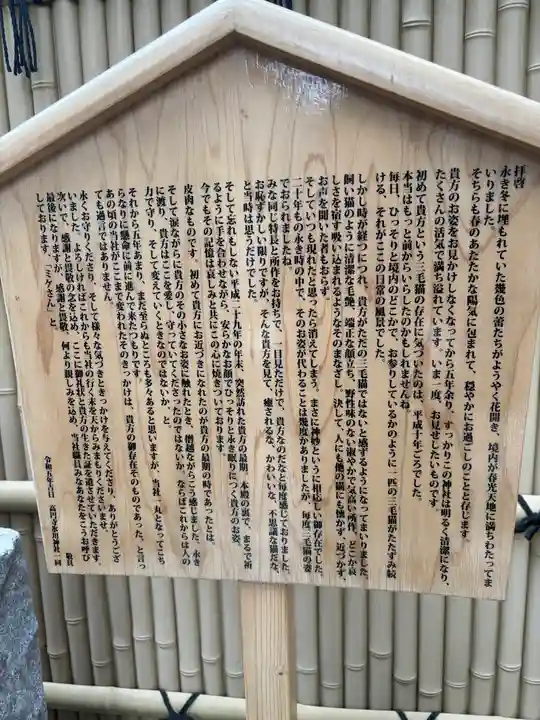 拝啓
永き冬に埋もれていた幾色の蕾たちがようやく花開き、境内が春光天地に満ちわたってま
いりました。
そちらも春のあたたかな陽気に包まれて、穏やかにお過ごしのことと存じます。
貴方のお姿をお見かけしなくなってから五年余り、すっかりこの神社は明るく清潔になり、
たくさんの活気で満ち溢れています。いま一度、お見せしたいものです。
初めて貴方という三毛猫の存在に気づいたのは、平成十年ごろでした。
本当はもっと前からいらしたのかもしれませんね。
毎日、ひっそりと境内のどこかで、お参りしているかのように一匹の三毛猫がたたずみ続
ける、それがここの日常の風景でした。
しかし時が経つにつれ、貴方がただの三毛猫ではないと感ずるようになってまいりました。
飼い猫のように清潔な毛艶、端正な顔立ち、野性味のない淑やかで気高い所作、どこか哀
しさを宿す吸い込まれるようなそのまなざし、決して、人にも他の猫にも懐かず、近づかず、
お声を聞いた者もおらず。
そしていつも現れたと思ったら消えてしまう、まさに神妙という言葉に相応しい御存在でした。
二十年もの永き時の中で、そのお姿が代わることは幾度かありましたが、毎度三毛猫の姿
でおられましたね。
みな同じ特長と所作をお持ちで、一目見ただけで、貴方なのだなと毎度感じておりました。
お恥ずかしい限りですが、そんな貴方を見て、癒されるな、かわいいな、不思議な猫だな、
と当時は思うだけでした。
そして忘れもしない平成二十九年の年末、突然訪れた貴方の最期。本殿の裏で、まるで祈
るように手を合わせながら、安らかなお顔でひっそりと永き眠りにつく貴方のお姿、
今でもその記憶は哀しみと共にこの心に焼きついております。
皮肉なものです、初めて貴方にお近づきになれたのが貴方の最期の時であったとは。
そして涙ながらに貴方のその小さなお姿に触れたとき、僭越ながらこう感じました、永き
に渡り、貴方はここを愛し、守っていてくださったのではないか、ならばこれからは人の
力で守り、そして変えていくときなのではないか、と。
それから五年あまり、まだ至らぬところも多々あると思いますが、当社一丸となってこち
らなりに懸命に前に進んで来たつもりです。
あの頃から当社がここまで変われたそのきっかけは、貴方の御存在そのものであった、と言っ
ても過言ではありません。
永くお守りくださり、そして様々な気づきときっかけを与えてくださり、ありがとうござ
いました。よろしければこれからも当社の行く末を天からみまもりくださいませ。
次いで、感謝と畏敬の念を込め、ここに御礼状と貴方の生きた証を遺させていただきます。
最後になりますが、感謝と畏敬、何より親しみを込め、当社職員みなあなたをこうお呼び
しております。「ミケさん」と。
敬具
令和五年五月 高円寺氷川神社一同